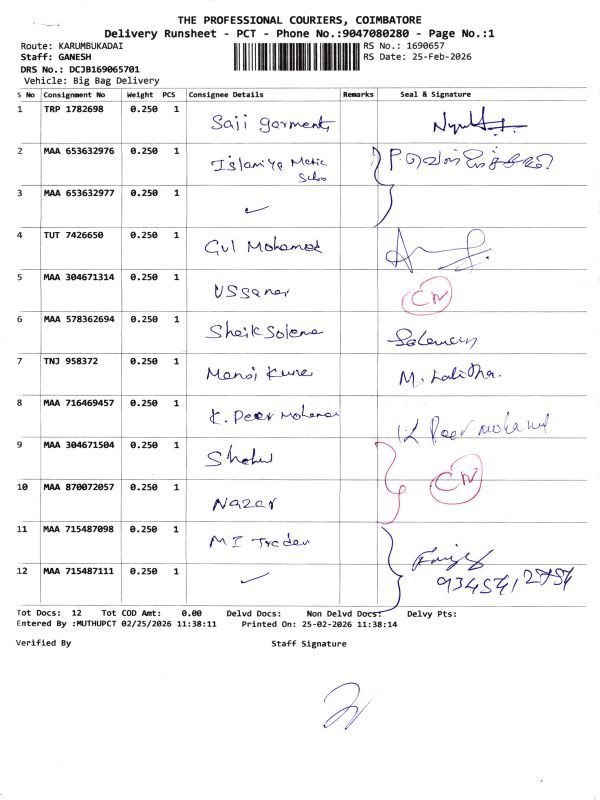 THE PROFESSIONAL COURIERS, COIMBATORE
Delivery Runsheet - PCT - Phone No.:9047080280 - Page No.:1
Route: KARUMBUKADAI
RS No.: 1690657
Staff: GANESH
RS Date: 25-Feb-2026
DRS No.: DCJB169065701
Vehicle: Big Bag Delivery
S No Consignment No Weight PCS Consignee Details Remarks Seal & Signature
1 TRP 1782698 0.250 1 Saji garments
2 MAA 653632976 0.250 1 Islamiya Matric
3 MAA 653632977 0.250 1 ✓
4 TUT 7426650 0.250 1 Gul Mohamed
5 MAA 304671314 0.250 1 USSaner CN
6 MAA 578362694 0.250 1 Sheik Solema
7 TNJ 958372 0.250 1 Manoj Kumar M. Lalitha.
8 MAA 716469457 0.250 1 K. Peer Mohamed K Peer mohamed
9 MAA 304671504 0.250 1
10 MAA 870072057 0.250 1 Nazar CN
11 MAA 715487098 0.250 1 MI Traders
12 MAA 715487111 0.250 1 ✓
Tot Docs: 12 Tot COD Amt: 0.00 Delvd Docs: Non Delvd Docs: Delvy Pts:
Entered By :MUTHUPCT 02/25/2026 11:38:11 Printed On: 25-02-2026 11:38:14
Verified By Staff Signature